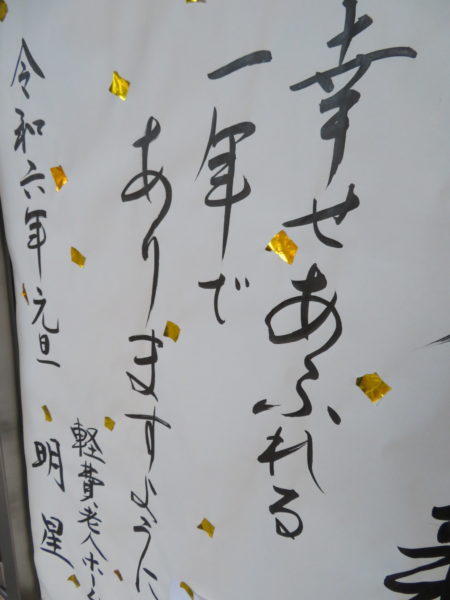 幸せあふれる
一年で
ありますように
令和六年元旦
軽費老人ホーム
明星